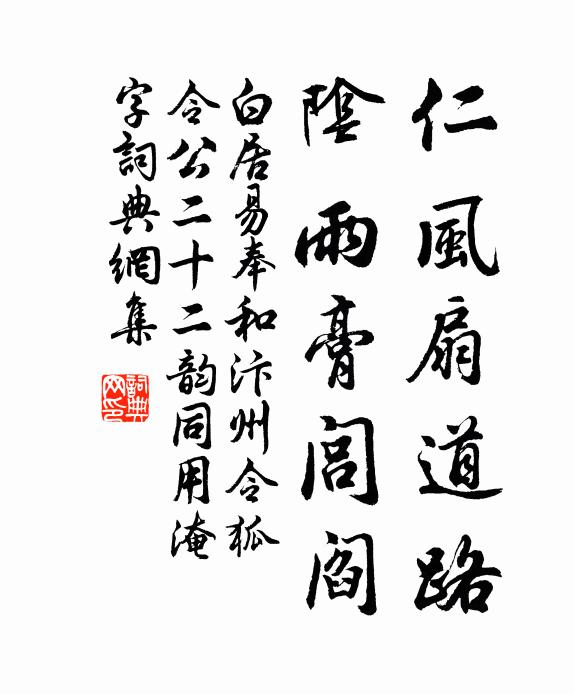 仁風扇道路
陰雨膏閭閻
白居易奉和汴州令狐
令公二十二韵同用淹
字詞典網集
詞典
网印